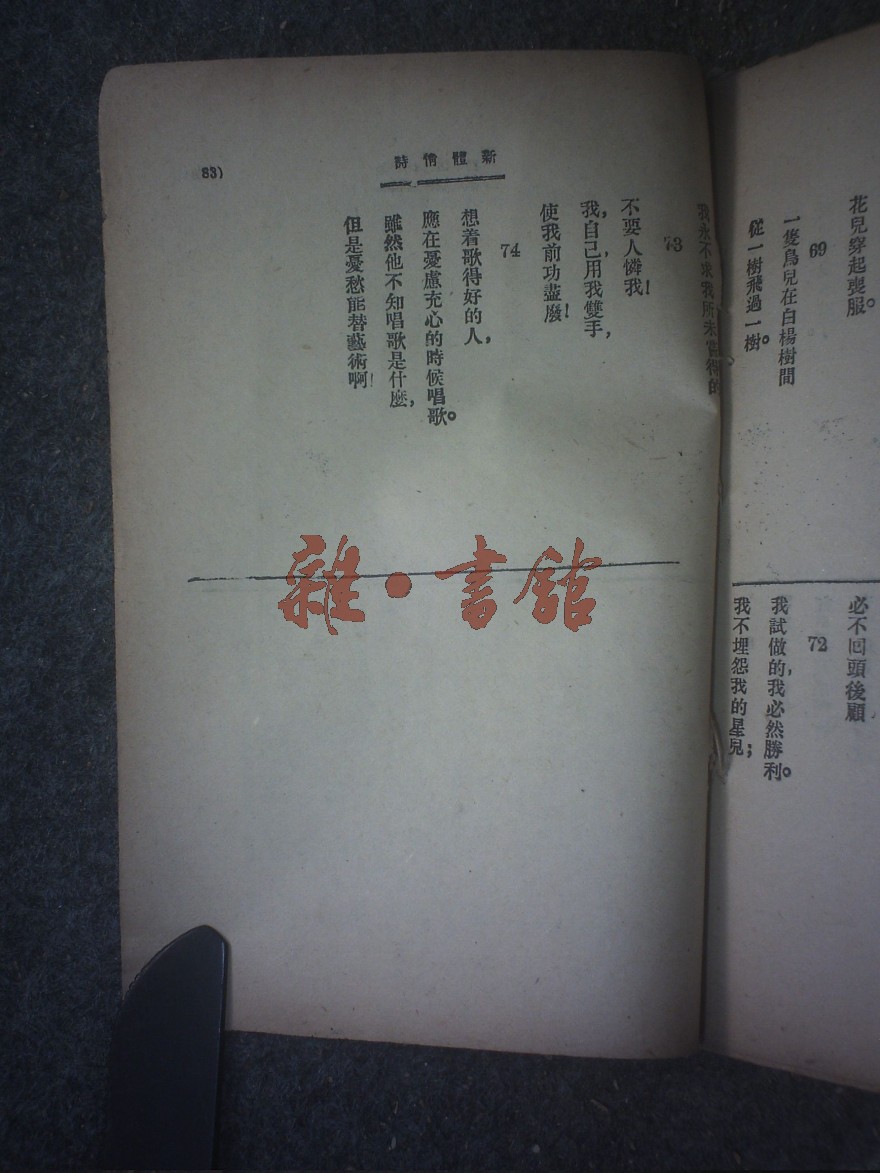 花兒穿起喪服。
69
一隻鳥兒在白楊樹間
從一樹飛過一樹。
必不回頭後顧
72
我試做的,我必然勝利。
我不埋怨我的星兒;
新體情詩
83)
我永不求我所未嘗得的
73
不要人憐我!
我,自己,用我雙手,
使我前功盡廢!
74
想着歌得好的人,
應在憂慮充心的時候唱歌。
雖然他不知唱歌是什麼,
但是憂愁能替藝術啊!
雜·書館